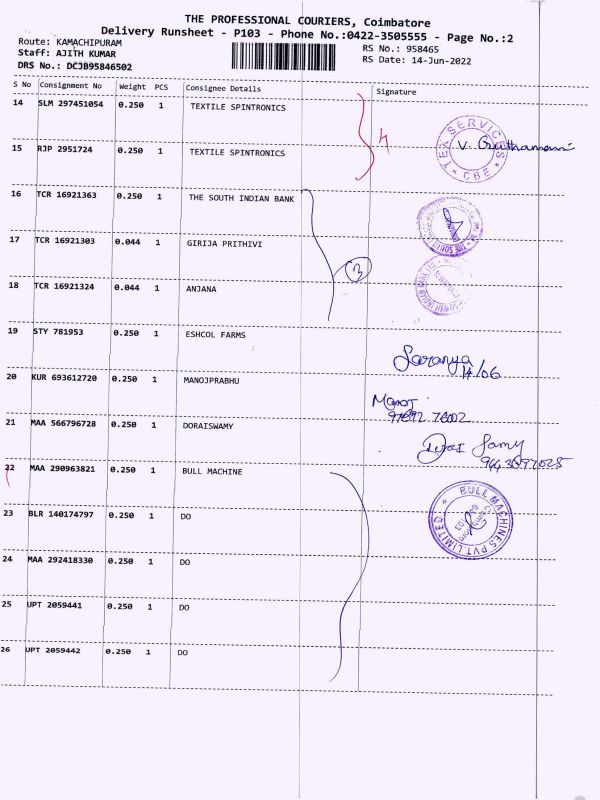 THE PROFESSIONAL COURIERS, Coimbatore
Delivery Runsheet - P103 - Phone No.:0422-3505555 - Page No.:2
Route: KAMACHIPURAM
Staff: AJITH KUMAR
DRS No.: DCJB95846502
RS No.: 958465
RS Date: 14-Jun-2022
S No Consignment No Weight PCS Consignee Details Signature
14 SLM 297451054 0.250 1 TEXTILE SPINTRONICS
4
15 RJP 2951724 0.250 1 TEXTILE SPINTRONICS
TEX SERVICES * CBE *
16 TCR 16921363 0.250 1 THE SOUTH INDIAN BANK
17 TCR 16921303 0.044 1 GIRIJA PRITHIVI
3
18 TCR 16921324 0.044 1 ANJANA
19 STY 781953 0.250 1 ESHCOL FARMS
Saranya
14/06
20 KUR 693612720 0.250 1 MANOJPRABHU
Manoj
21 MAA 566796728 0.250 1 DORAISWAMY
Samy
22 MAA 290963821 0.250 1 BULL MACHINE
BULL MACHINES PVT. LIMITED
23 BLR 140174797 0.250 1 DO
24 MAA 292418330 0.250 1 DO
25 UPT 2059441 0.250 1 DO
26 UPT 2059442 0.250 1 DO